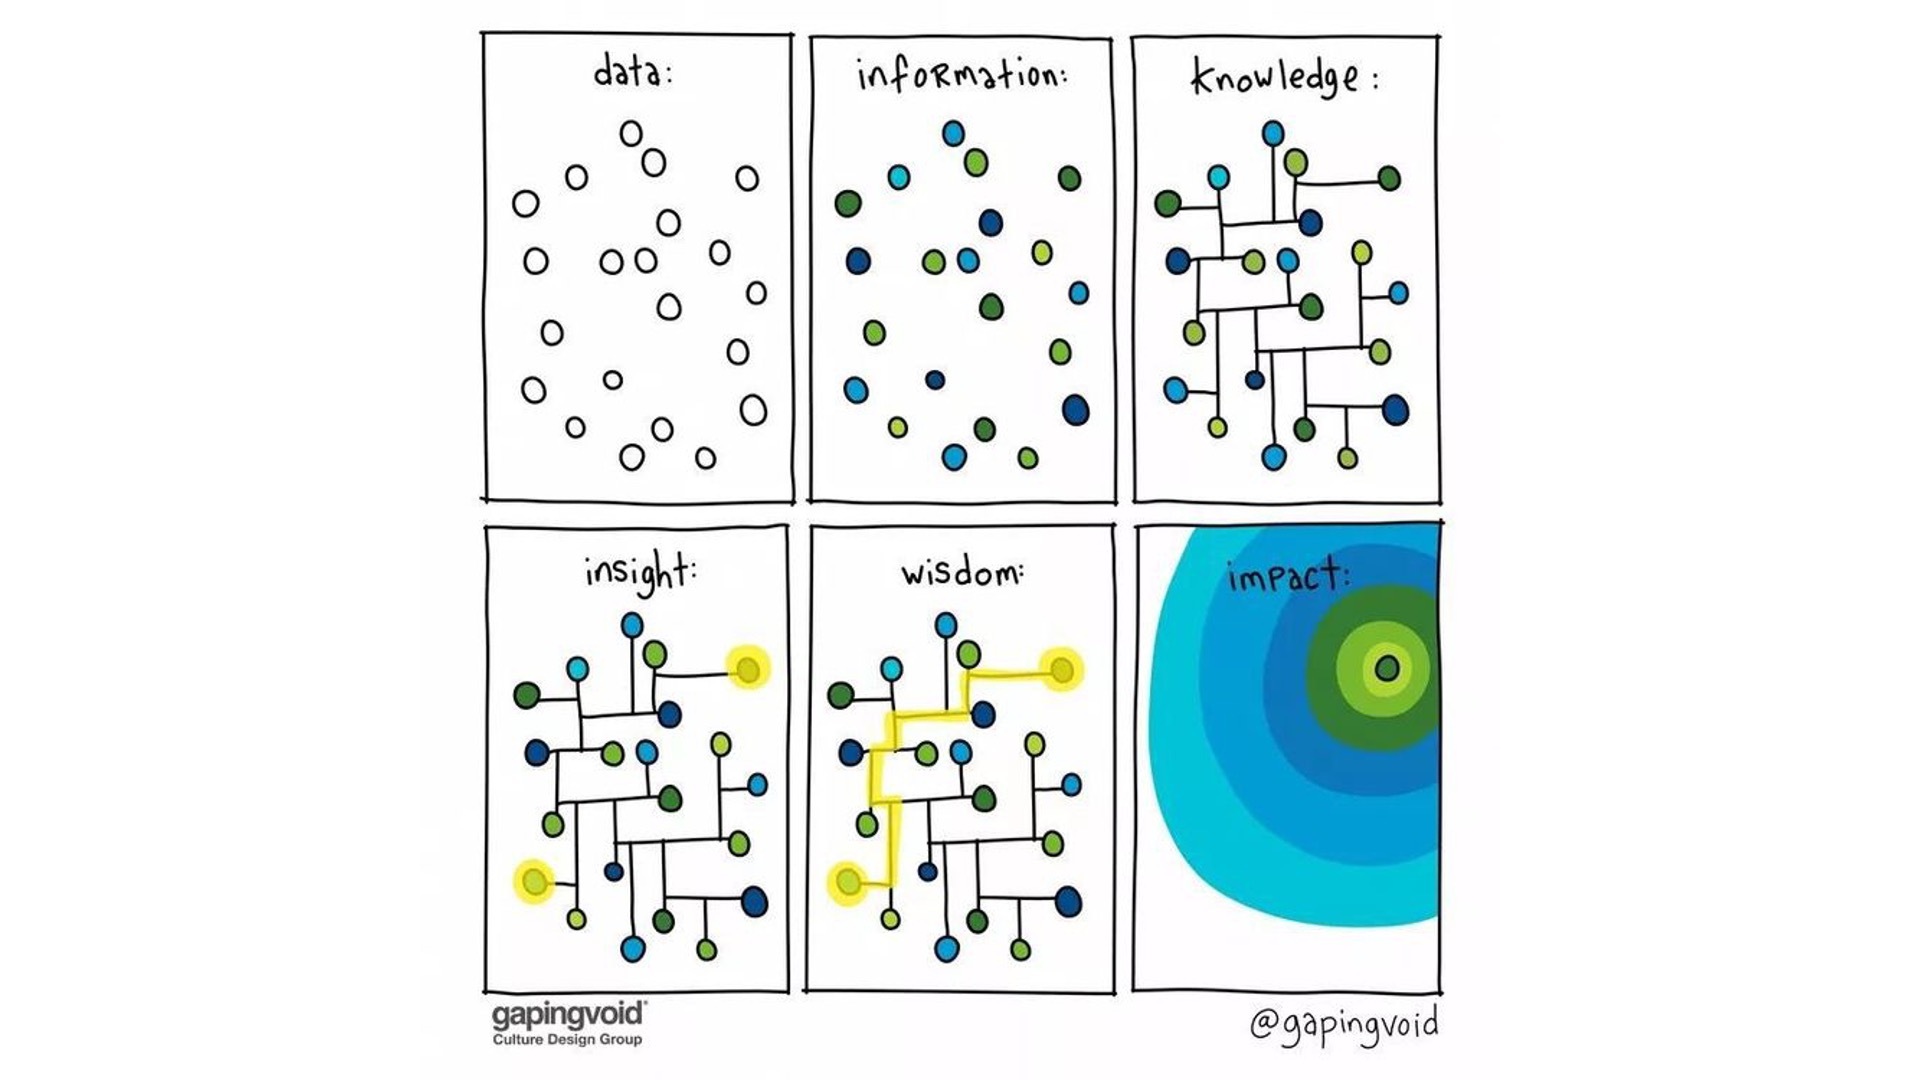 data:
infoRmation:
knowledge:
insight:
wisdom:
impact:
gapingvoid®
Culture Design Group
@gapingvoid